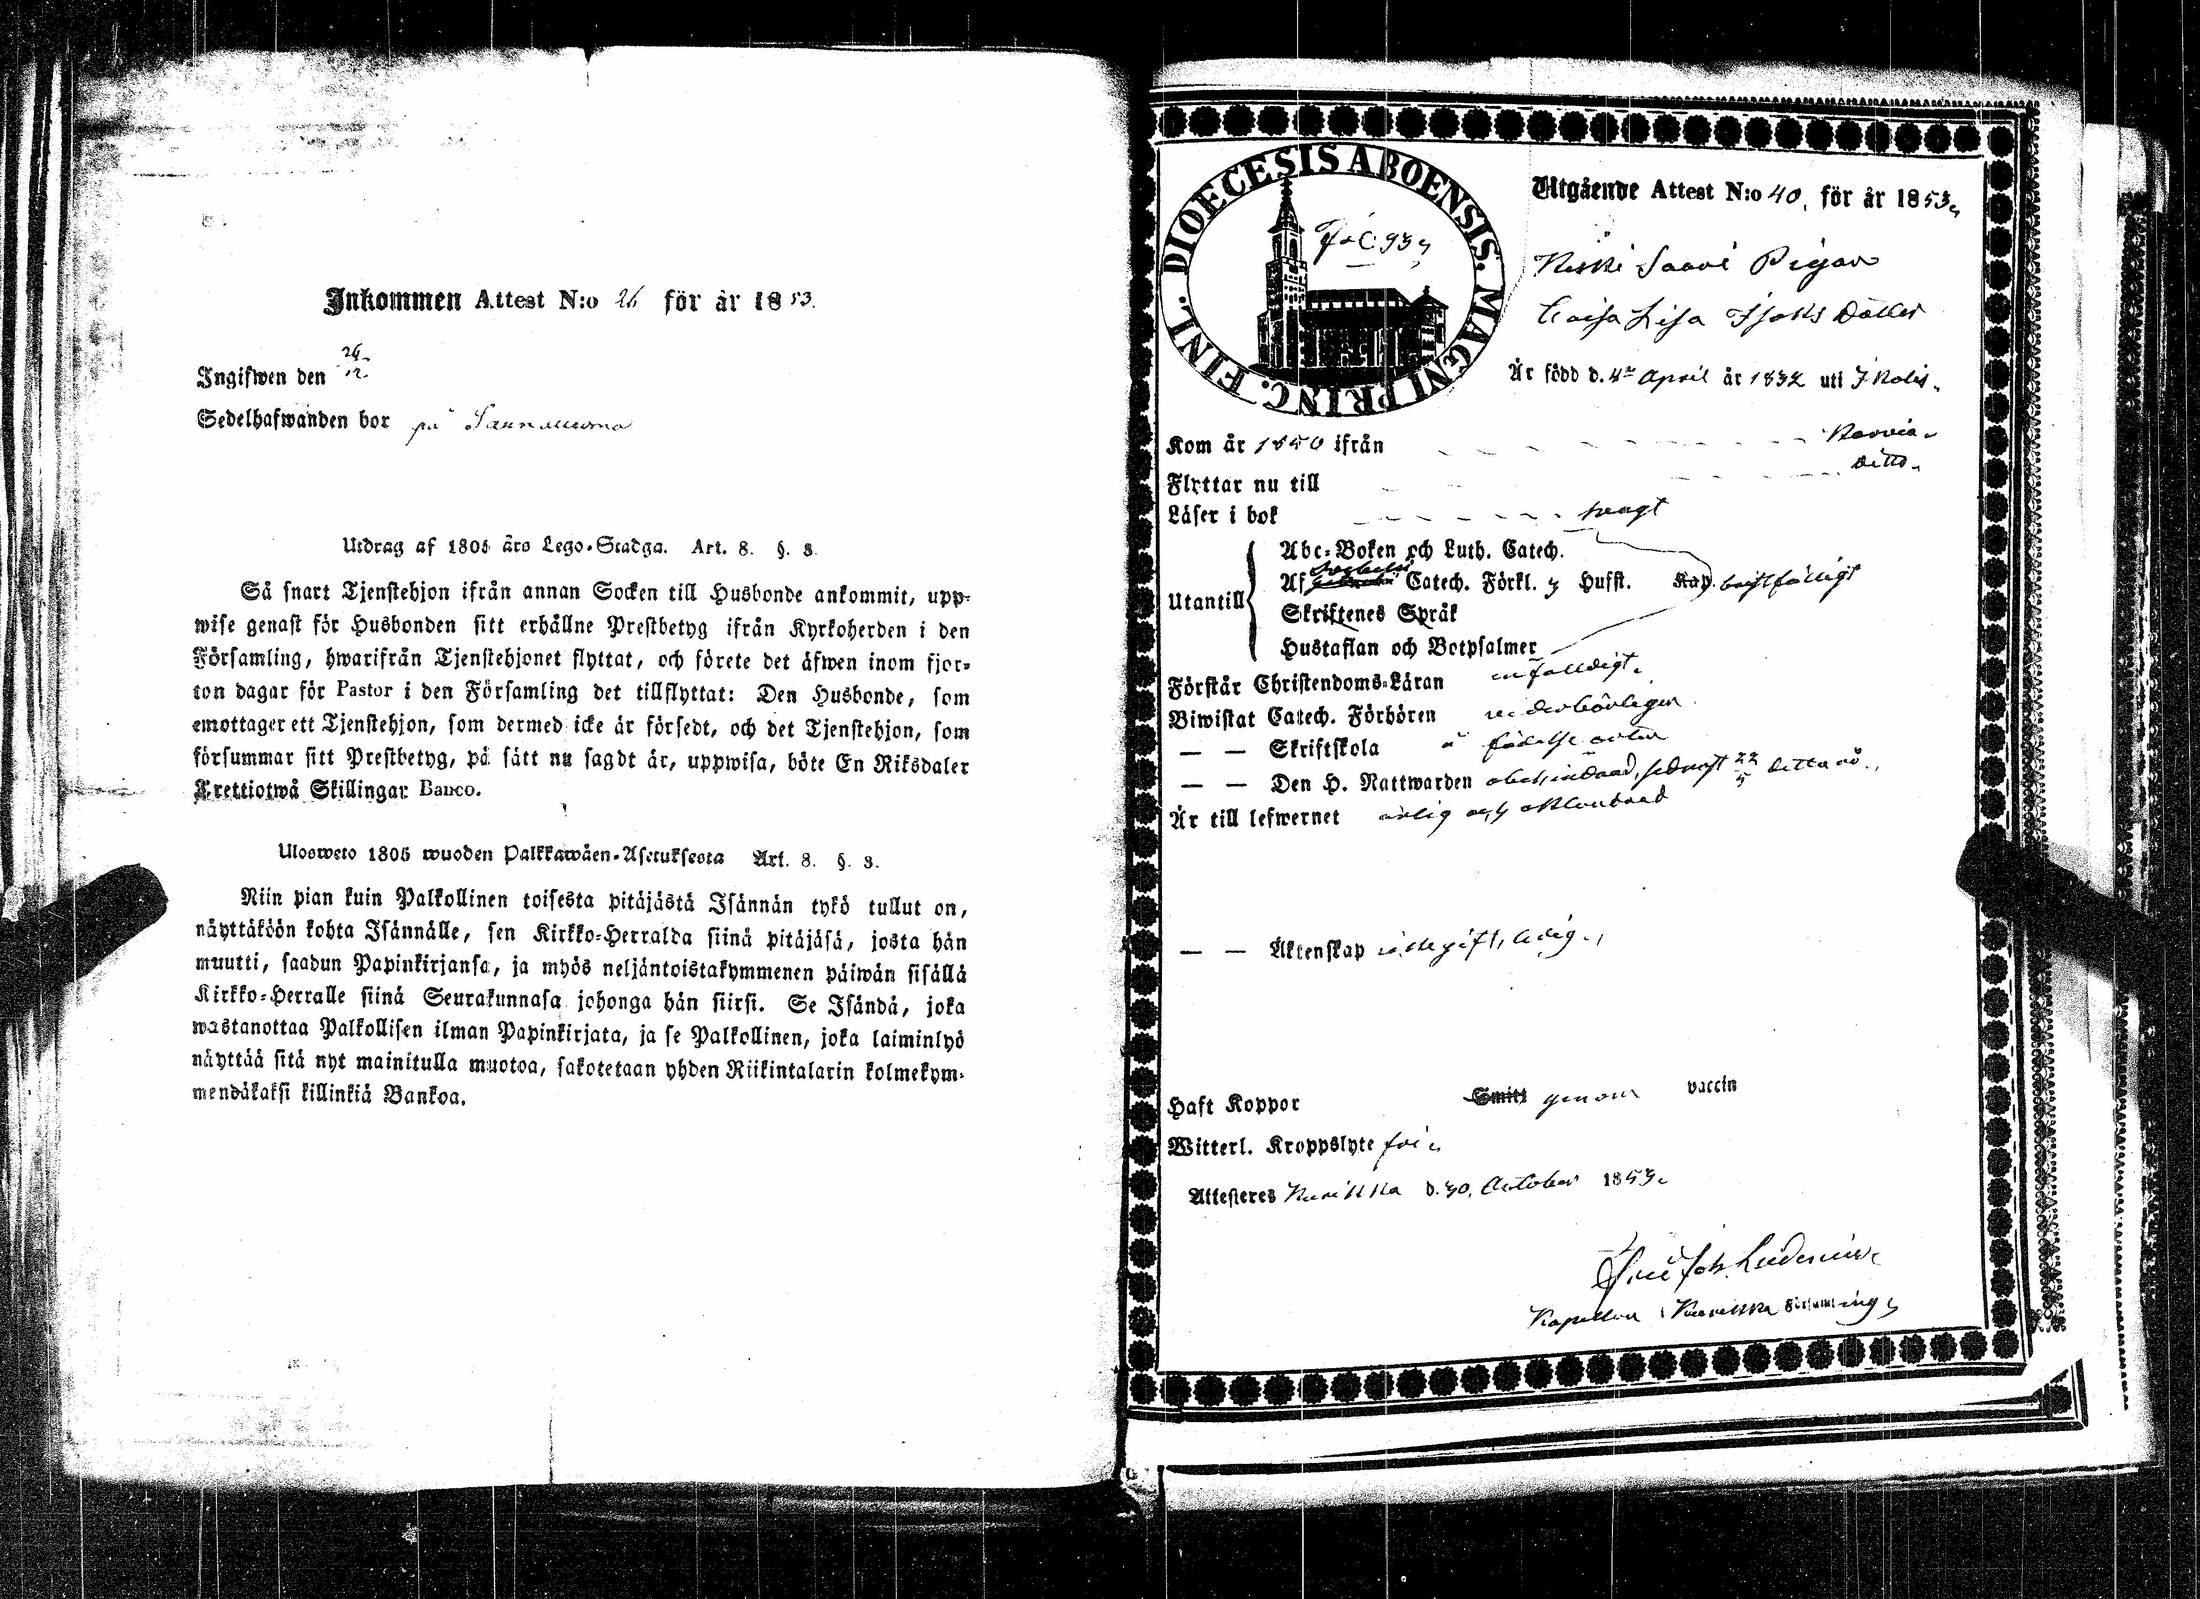 Inkommen Attest N:o 26 för år 1853.
Ingifwen den 24/12
Sedelhafwanden bor på
Utdrag af 1805 års Lego-Stadga. Art. 8. §. 3.
Så snart Tjenstehjon ifrån annan Socken till Husbonde ankommit, upp-
wise genast för Husbonden sitt erhållne Prestbetyg ifrån Kyrkoherden i den
Församling, hwarifrån Tjenstehjonet flyttat, och förete det äfwen inom fjor-
ton dagar för Pastor i den Församling det tillflyttat: Den Husbonde, som
emottager ett Tjenstehjon, som dermed icke är försedt, och det Tjenstehjon, som
försummar sitt Prestbetyg, på sätt nu sagdt är, uppwisa, böte En Riksdaler
Trettiotwå Skillingar Banco.
Ulosweto 1805 wuoden Palkkawäen-Asetuksesta Art. 8. §. 3.
Niin pian kuin Palkollinen toisesta pitäjästä Isännän tykö tullut on,
näyttäköön kohta Isännälle, sen Kirkko-Herralda siinä pitäjäsä, josta hän
muutti, saadun Papinkirjansa, ja myös neljäntoistakymmenen päiwän sisällä
Kirkko-Herralle siinä Seurakunnasa johonga hän siirsi. Se Isändä, joka
wastanottaa Palkollisen ilman Papinkirjata, ja se Palkollinen, joka laiminlyö
näyttää sitä nyt mainitulla muotoa, sakotetaan yhden Riikintalarin kolmekym-
mendäkaksi killinkiä Bankoa.
DIOECESIS ABOENSIS. MAGNI PRINC. FINL.
Fol. 93
Utgående Attest N:o 40, för år 1853.
Pigan
Caisa Lisa Isaks Dotter
Är född d. 4de April år 1832 uti Ikalis.
Kom år 1850 ifrån Karvia.
Flyttar nu till Ditto.
Läser i bok svagt
Utantill
Abc-Boken och Luth. Catech.
Af Catech. Förkl. Husst. Kap. bristfälligt
Skriftenes Språk
Hustaflan och Botpsalmer
Förstår Christendoms-Läran enfaldigt.
Biwistat Catech. Förhören vederbörligen
— — Skriftskola å födelse orten
— — Den H. Nattwarden obehindrad, sednast 22/5 detta år.
Är till lefwernet ärlig och oklandrad
— — Äktenskap icke gift, ledig.
Haft Koppor Smitt genom vaccin
Witterl. Kroppslyte fri.
Attesteres Kurikka d. 30. October 1853.
Kapellan i Kurikka Församling